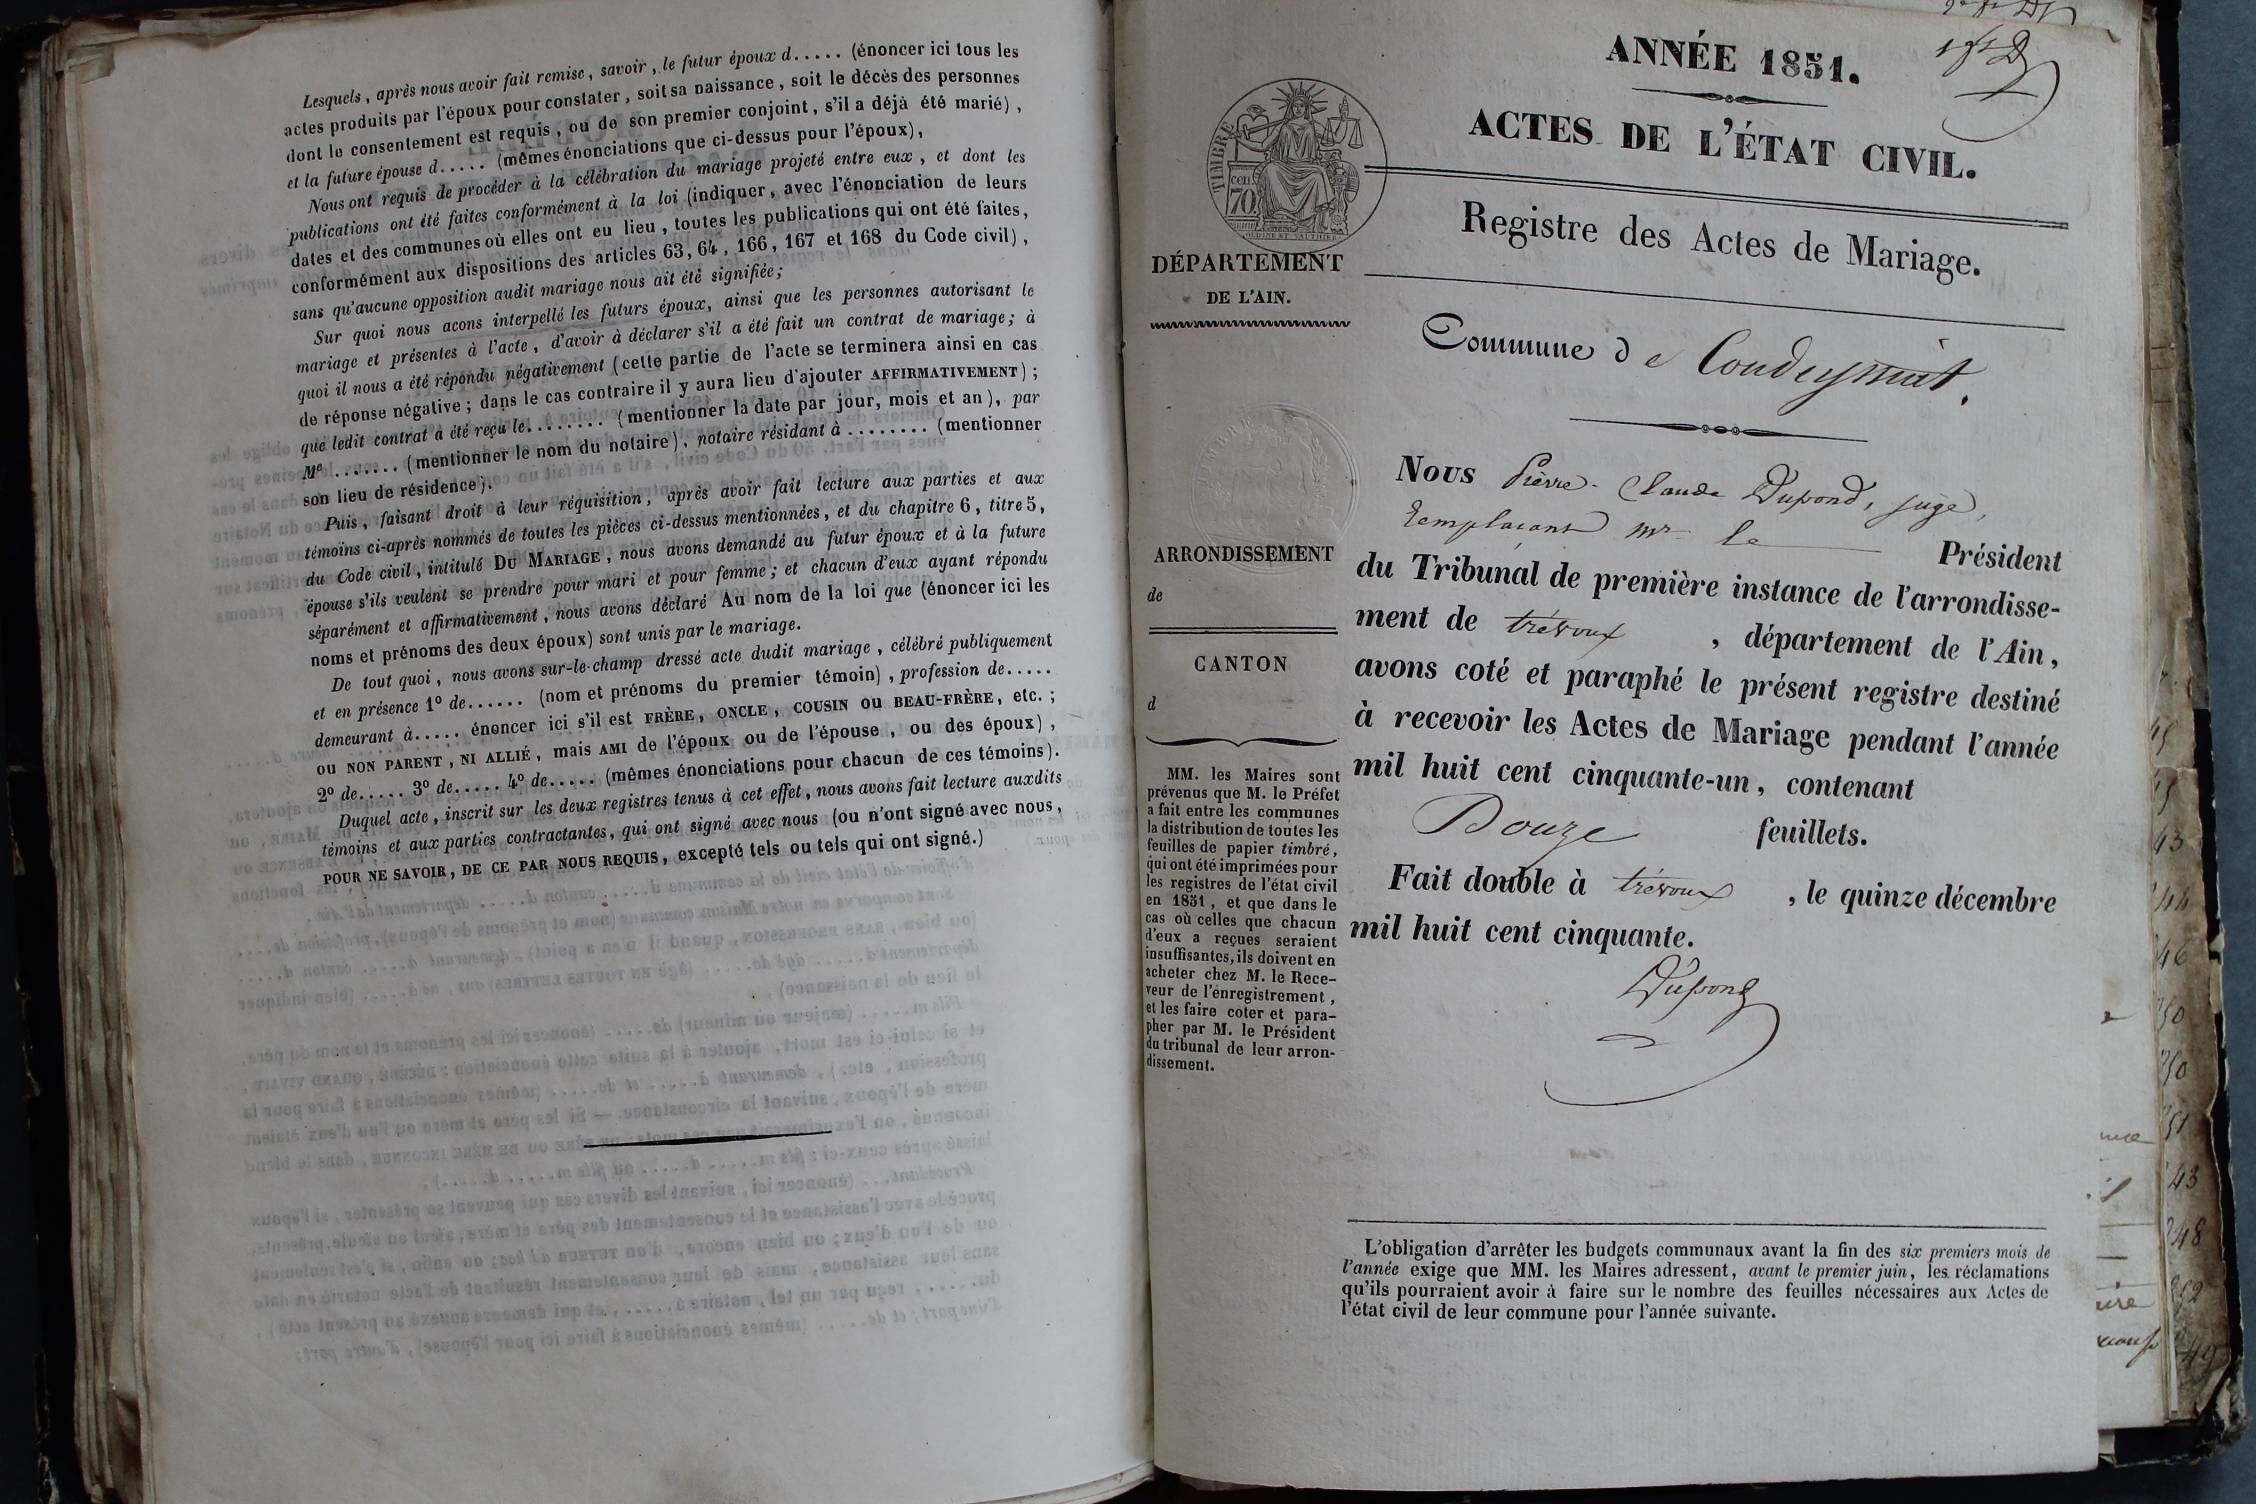 Lesquels, après nous avoir fait remise, savoir, le futur époux d..... (énoncer ici tous les
actes produits par l'époux pour constater, soit sa naissance, soit le décès des personnes
dont le consentement est requis, ou de son premier conjoint, s'il a déjà été marié),
et la future épouse d..... (mêmes énonciations que ci-dessus pour l'époux),
Nous ont requis de procéder à la célébration du mariage projeté entre eux, et dont les
publications ont été faites conformément à la loi (indiquer, avec l'énonciation de leurs
dates et des communes où elles ont eu lieu, toutes les publications qui ont été faites,
conformément aux dispositions des articles 63, 64, 166, 167 et 168 du Code civil),
sans qu'aucune opposition audit mariage nous ait été signifiée;
Sur quoi nous acons interpellé les futurs époux, ainsi que les personnes autorisant le
mariage et présentes à l'acte, d'avoir à déclarer s'il a été fait un contrat de mariage; à
quoi il nous a été répondu négativement (cette partie de l'acte se terminera ainsi en cas
de réponse négative; dans le cas contraire il y aura lieu d'ajouter AFFIRMATIVEMENT);
que ledit contrat a été reçu le........ (mentionner la date par jour, mois et an), par
Me ....... (mentionner le nom du notaire), notaire résidant à ........ (mentionner
son lieu de résidence).
Puis, faisant droit à leur réquisition, après avoir fait lecture aux parties et aux
témoins ci-après nommés de toutes les pièces ci-dessus mentionnées, et du chapitre 6, titre 5,
du Code civil, intitulé DU MARIAGE, nous avons demandé au futur époux et à la future
épouse s'ils veulent se prendre pour mari et pour femme; et chacun d'eux ayant répondu
séparément et affirmativement, nous avons déclaré Au nom de la loi que (énoncer ici les
noms et prénoms des deux époux) sont unis par le mariage.
De tout quoi, nous avons sur-le-champ dressé acte dudit mariage, célébré publiquement
et en présence 1º de...... (nom et prénoms du premier témoin), profession de.....
demeurant à..... énoncer ici s'il est FRÈRE, ONCLE, COUSIN OU BEAU-FRÈRE, etc.;
ou NON PARENT, NI ALLIÉ, mais AMI de l'époux ou de l'épouse, ou des époux),
2º de..... 3º de..... 4º de..... (mêmes énonciations pour chacun de ces témoins).
Duquel acte, inscrit sur les deux registres tenus à cet effet, nous avons fait lecture auxdits
témoins et aux parties contractantes, qui ont signé avec nous (ou n'ont signé avec nous,
POUR NE SAVOIR, DE CE PAR NOUS REQUIS, excepté tels ou tels qui ont signé.)
ANNÉE 1851.
ACTES DE L'ÉTAT CIVIL.
Registre des Actes de Mariage.
TIMBRE
CEN.
70.
DÉPARTEMENT
DE L'AIN.
Commune d e Condeyssiat.
ARRONDISSEMENT
de
CANTON
d
MM. les Maires sont
prévenus que M. le Préfet
a fait entre les communes
la distribution de toutes les
feuilles de papier timbré,
qui ont été imprimées pour
les registres de l'état civil
en 1851, et que dans le
cas où celles que chacun
d'eux a reçues seraient
insuffisantes, ils doivent en
acheter chez M. le Rece-
veur de l'énregistrement,
et les faire coter et para-
pher par M. le Président
du tribunal de leur arron-
dissement.
NOUS Pierre-Claude Dupond, juge,
remplaçant Mr le Président
du Tribunal de première instance de l'arrondisse-
ment de trévoux, département de l'Ain,
avons coté et paraphé le présent registre destiné
à recevoir les Actes de Mariage pendant l'année
mil huit cent cinquante-un, contenant
Douze feuillets.
Fait double à trévoux, le quinze décembre
mil huit cent cinquante.
Dupond
L'obligation d'arrêter les budgets communaux avant la fin des six premiers mois de
l'année exige que MM. les Maires adressent, avant le premier juin, les réclamations
qu'ils pourraient avoir à faire sur le nombre des feuilles nécessaires aux Actes de
l'état civil de leur commune pour l'année suivante.